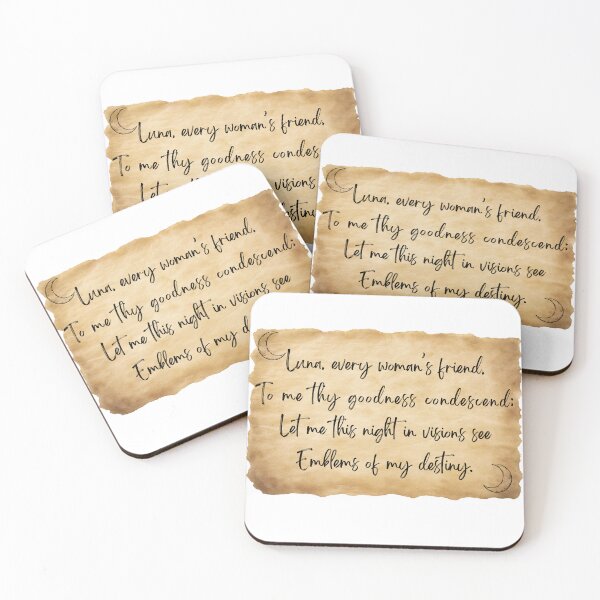 Luna, every woman's friend,
To me thy goodness
Let me this night in visions
Luna, every woman's friend,
To me thy goodness condescend;
Let me this night in visions see
Emblems of my destiny.
Luna, every woman's friend,
To me thy goodness condescend;
Let me this night in visions see
Emblems of my
Luna, every woman's friend,
To me thy goodness condescend;
Let me this night in visions see
Emblems of my destiny.